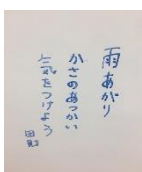 雨あがり
かさのあつかい
気をつけよう